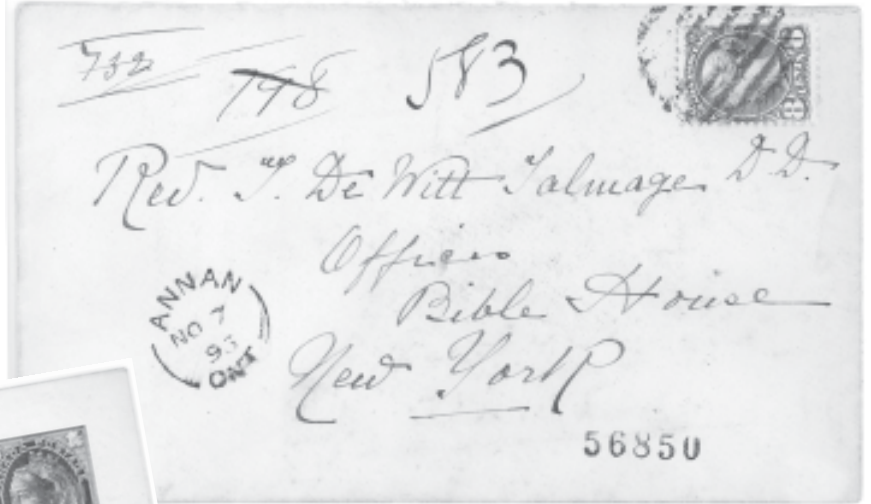 732
198
583
Rev. T. De Witt Talmage D.D.
Offices
Bible House
New York
ANNAN
NO 7
93
ONT
56850